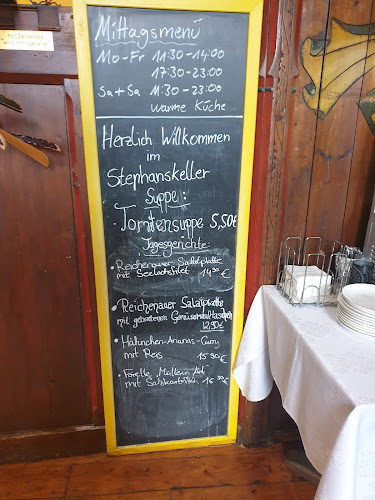 Mittagsmenü
Mo-Fr 11:30-14:00
17:30-23:00
Sa+So 11:30-23:00
warme Küche
Herzlich Willkommen
im
Stephanskeller
Suppe:
Tomatensuppe 5,50€
Tagesgerichte:
• Reichenauer Salatplatte
mit Seelachsfilet 14,50 €
• Reichenauer Salatplatte
mit gebratenen Gemüsemaultaschen
12,90€
• Hähnchen-Ananas-Curry
mit Reis 15,90€
• Forelle "Müllerin Art"
mit Salzkartoffeln